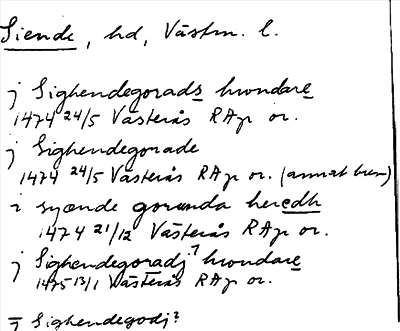 Siende, hd, Västm. l.
j Sighendegorads hwndare
1474 24/5 Västerås RAp or.
j Sighendegorade
1474 24/5 Västerås RAp or. (annat brev)
i syænde gorunda heredh
1474 21/12 Västerås RAp or.
j Sighendegoradj? hwndare
1475 13/1 Västerås RAp or.
j Sighendegodj?